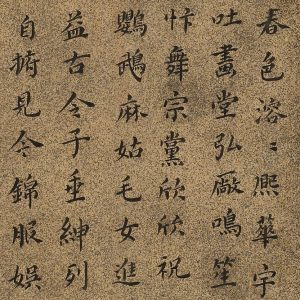 春色溶〻熙華宇
吐畫堂弘厰鳴笙
忭舞宗黨欣欣祝
鸚鵡麻姑毛女進
益古令子垂紳列
自見今錦服娛